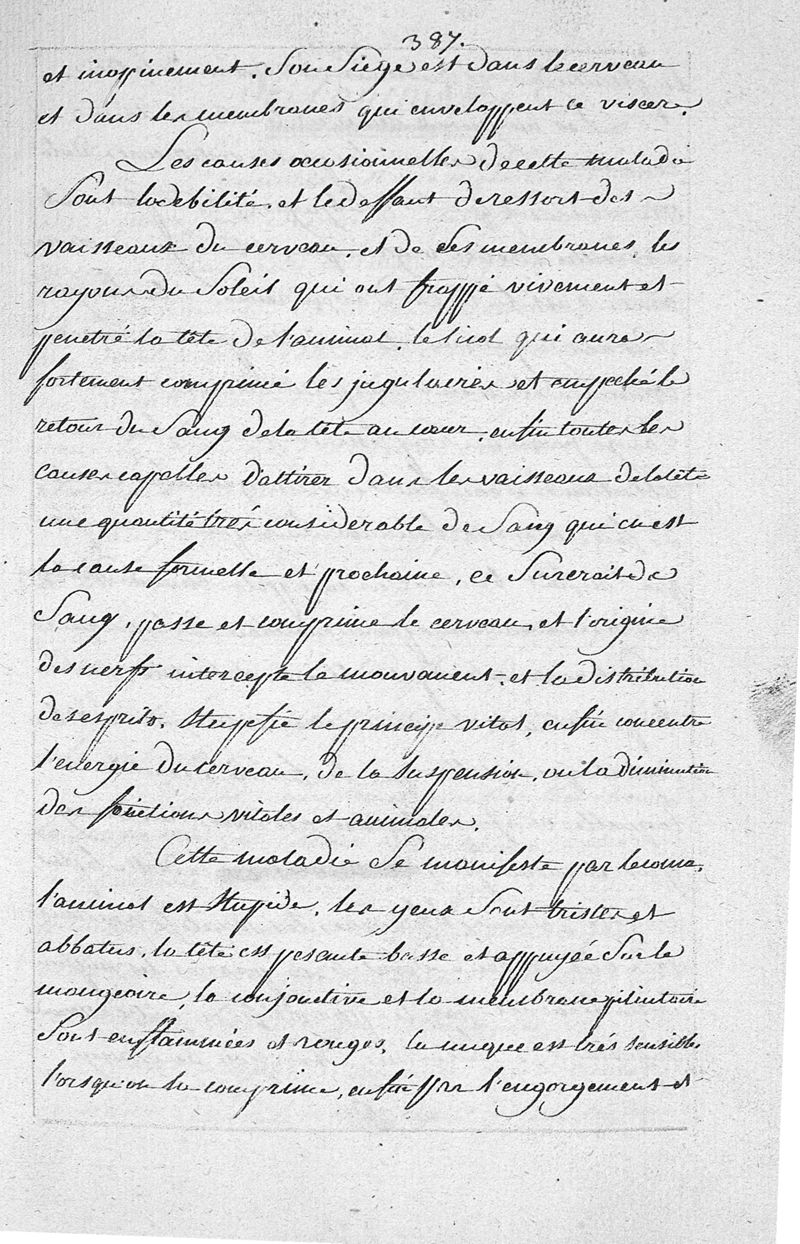 387.
et inopinement. Son Siege est dans le cerveau
et dans les membranes qui enveloppent ce viscere.
Les causes occasionnelles de cette maladie
Sont la debilité, et le deffaut de ressort des
vaisseaux du cerveau, et de Ses membranes, les
rayons du Soleil qui ont frappé vivement et
penetré la tête de l'animal, le licol qui aura
fortement comprimé les jugulaires et empeché le
retour du Sang de la tête au cœur, enfin toutes les
causes capables d'attirer dans les vaisseaux de la tête
une quantité trés considerable de Sang qui en est
la cause formelle et prochaine, ce Surcroit de
Sang, passe et comprime le cerveau, et l'origine
des nerfs intercepte le mouvement, et la distribution
des esprits, Stupefie le principe vital, enfin concentre
l'energie du cerveau, de la Suspension, ou la diminution
des fonctions vitales et animales.
Cette maladie Se manifeste par le coma,
l'animal est Stupide, les yeux Sont tristes et
abbatus, la tête est pesante basse et appuyée Sur la
mangeoire, la conjonctive et la membrane pituitaire
Sont enflammées et rouges, la nuque est trés sensible
l'orsqu'on la comprime, enfin l'engorgement et